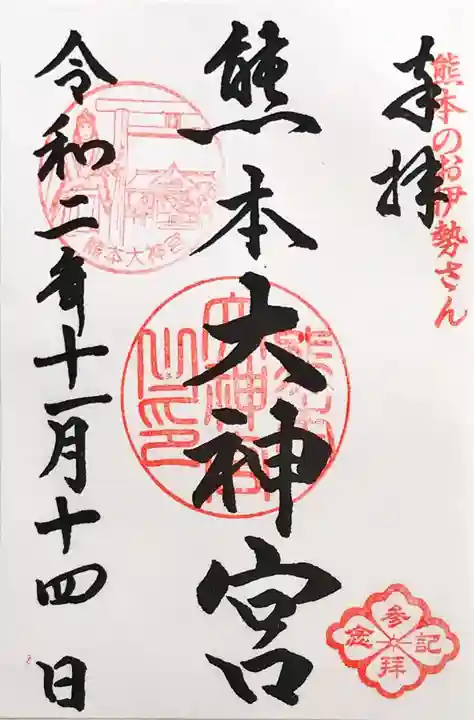 熊本のお伊勢さん
奉拝
熊本大神宮
熊本大神宮之印
令和二年十一月十四日
熊本大神宮
参拝記念